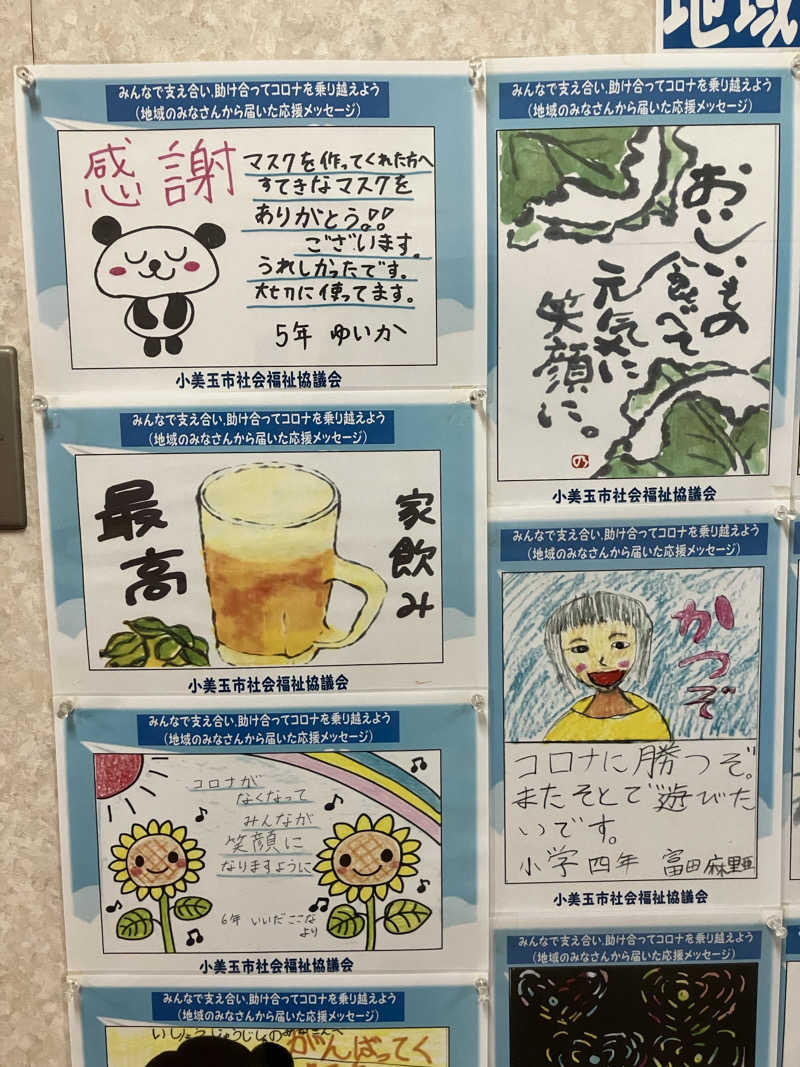 地域
みんなで支え合い、助け合ってコロナを乗り越えよう
(地域のみなさんから届いた応援メッセージ)
感謝
マスクを作ってくれた方へ
すてきなマスクを
ありがとう!!
ございます。
うれしかったです。
大切に使ってます。
5年 ゆいか
小美玉市社会福祉協議会
みんなで支え合い、助け合ってコロナを乗り越えよう
(地域のみなさんから届いた応援メッセージ)
おいしいもの
食べて
元気に
笑顔に。
小美玉市社会福祉協議会
みんなで支え合い、助け合ってコロナを乗り越えよう
(地域のみなさんから届いた応援メッセージ)
家飲み
最高
小美玉市社会福祉協議会
みんなで支え合い、助け合ってコロナを乗り越えよう
(地域のみなさんから届いた応援メッセージ)
かつぞ
コロナに勝つぞ。
またそとで遊びた
いです。
小学四年 富田麻里亜
小美玉市社会福祉協議会
みんなで支え合い、助け合ってコロナを乗り越えよう
(地域のみなさんから届いた応援メッセージ)
コロナが
なくなって
みんなが
笑顔に
なりますように
6年 いいだ ここな
より
小美玉市社会福祉協議会
みんなで支え合い、助け合ってコロナを乗り越えよう
(地域のみなさんから届いた応援メッセージ)
がんばってく
みんなで支え合い、助け合ってコロナを乗り越えよう
(地域のみなさんから届いた応援メッセージ)